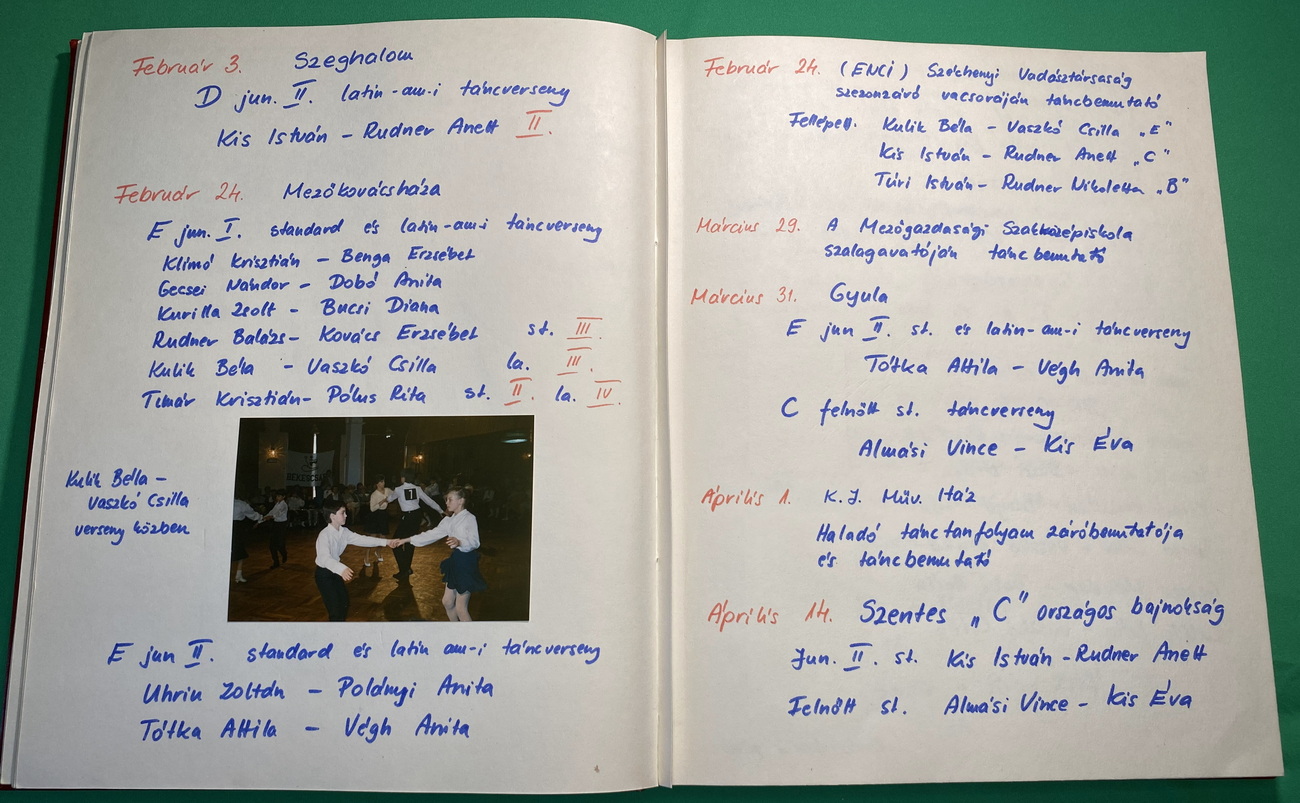 Február 3. Szeghalom
D jun. II. latin-am-i táncverseny
Kis István – Rudner Anett II.
Február 24. Mezőkovácsháza
E jun. I. standard és latin-am-i táncverseny
Klimó Krisztián – Benga Erzsébet
Gecsei Nándor – Dobó Anita
Kurilla Zsolt – Bucsi Diana
Rudner Balázs – Kovács Erzsébet st. III.
Kulik Béla – Vaszkó Csilla la. III.
Timár Krisztián – Pólus Rita st. II. la. IV.
Kulik Béla –
Vaszkó Csilla
verseny közben
7
E jun II. standard és latin am-i táncverseny
Uhrin Zoltán – Polányi Anita
Tótka Attila – Végh Anita
Február 24. (ENCI) Széchenyi Vadásztársaság
szezonzáró vacsoráján táncbemutató
Fellépett. Kulik Béla – Vaszkó Csilla „E"
Kis István – Rudner Anett „C"
Túri István – Rudner Nikoletta „B"
Március 29. A Mezőgazdasági Szakközépiskola
szalagavatóján táncbemutató
Március 31. Gyula
E jun II. st. és latin-am-i táncverseny
Tótka Attila – Végh Anita
C felnőtt st. táncverseny
Almási Vince – Kis Éva
Április 1. K. J. Műv. Ház
Haladó tánctanfolyam záróbemutatója
és táncbemutató
Április 14. Szentes „C" országos bajnokság
Jun. II. st. Kis István – Rudner Anett
Felnőtt st. Almási Vince – Kis Éva